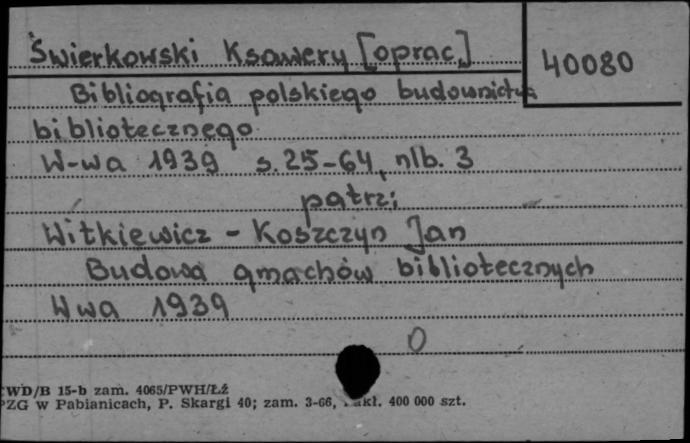 Świerkowski Ksawery [oprac.]
40080
Bibliografia polskiego budownictwa
bibliotecznego
W-wa 1939 s. 25-64, nlb. 3
patrz:
Witkiewicz - Koszczyn Jan
Budowa gmachów bibliotecznych
Wwa 1939
0
WD/B 15-b zam. 4065/PWH/Łź
PZG w Pabianicach, P. Skargi 40; zam. 3-66, 400 000 szt.